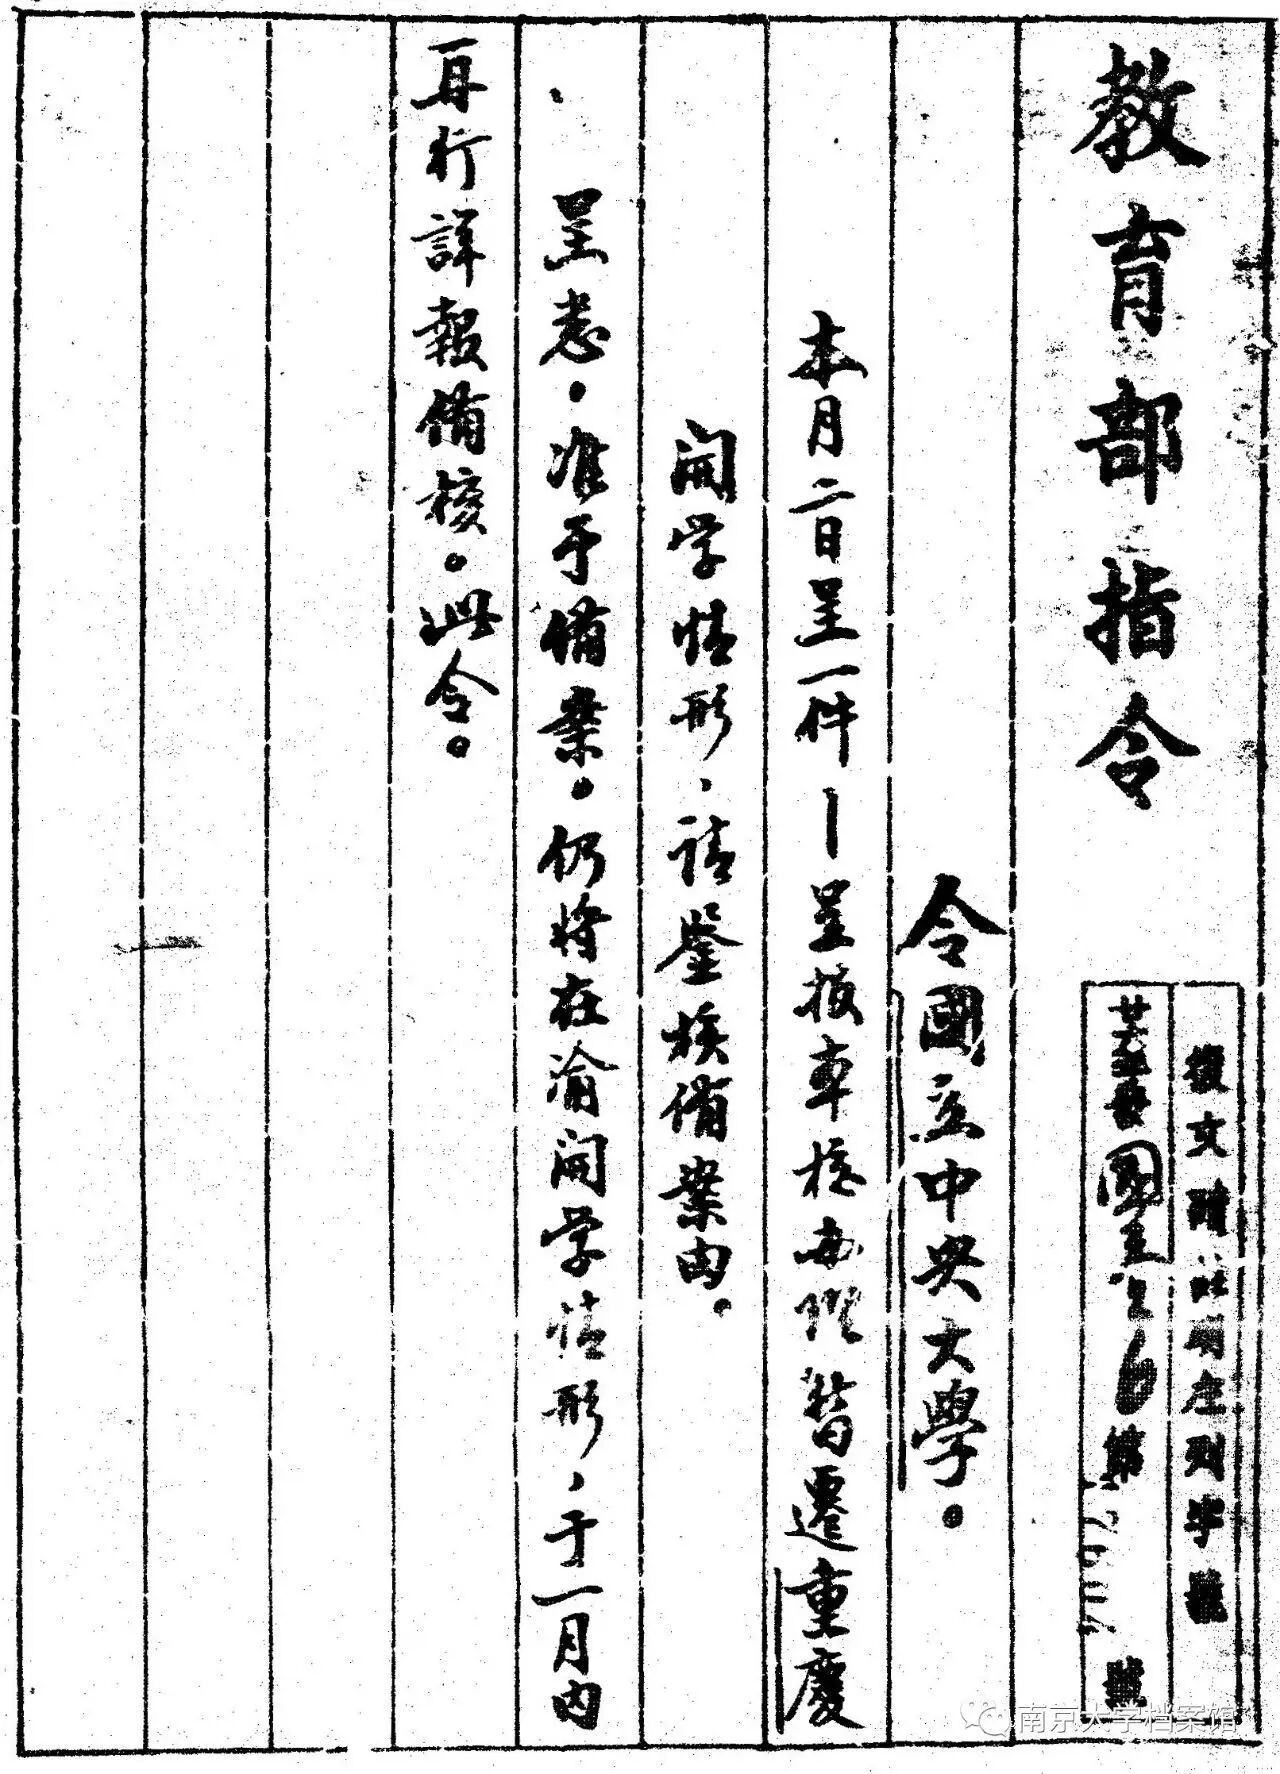 教育部指令
復文請註明左列字號
第 號
令國立中央大學。
本月二日呈一件—呈报本校办理暂遷重慶
開学情形，請鑒核備案由。
呈悉。准予備案。仍将在渝開学情形，于一月内
再行詳報備核。此令。
南京大学档案馆